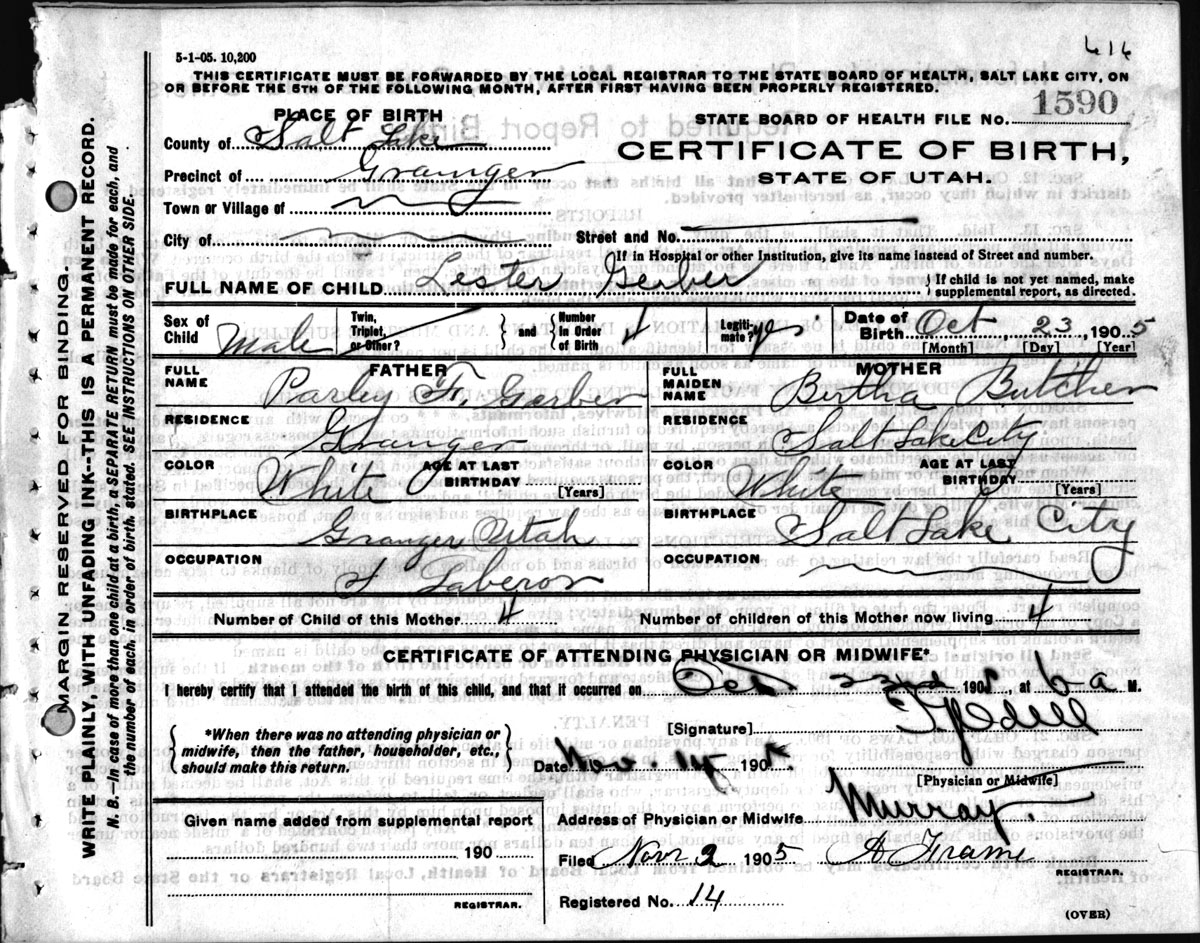 616
5-1-05. 10,200
THIS CERTIFICATE MUST BE FORWARDED BY THE LOCAL REGISTRAR TO THE STATE BOARD OF HEALTH, SALT LAKE CITY, ON
OR BEFORE THE 5TH OF THE FOLLOWING MONTH, AFTER FIRST HAVING BEEN PROPERLY REGISTERED.
PLACE OF BIRTH
STATE BOARD OF HEALTH FILE NO. 1590
County of Salt Lake
CERTIFICATE OF BIRTH,
STATE OF UTAH.
Precinct of Granger
Town or Village of
City of
Street and No.
If in Hospital or other Institution, give its name instead of Street and number.
FULL NAME OF CHILD Lester Gerber
If child is not yet named, make
supplemental report, as directed.
Sex of Child Male
Twin, Triplet, or Other?
and
Number in Order of Birth 4
Legitimate? yes
Date of Birth Oct 23 1905
[Month] [Day] [Year]
FATHER
FULL NAME Parley F. Gerber
RESIDENCE Granger
COLOR White
AGE AT LAST BIRTHDAY
[Years]
BIRTHPLACE Granger Utah
OCCUPATION Laberor
MOTHER
FULL MAIDEN NAME Bertha Butcher
RESIDENCE Salt Lake City
COLOR White
AGE AT LAST BIRTHDAY
[Years]
BIRTHPLACE Salt Lake City
OCCUPATION
Number of Child of this Mother 4
Number of children of this Mother now living 4
CERTIFICATE OF ATTENDING PHYSICIAN OR MIDWIFE*
I hereby certify that I attended the birth of this child, and that it occurred on Oct 23rd 1905 at 6 a M.
*When there was no attending physician or
midwife, then the father, householder, etc.,
should make this return.
[Signature]
Date Nov. 1905
[Physician or Midwife]
Given name added from supplemental report
190
REGISTRAR.
Address of Physician or Midwife Murray.
Filed Nov 2 1905 A Frame
REGISTRAR.
Registered No. 14
(OVER)
MARGIN RESERVED FOR BINDING.
WRITE PLAINLY, WITH UNFADING INK--THIS IS A PERMANENT RECORD.
N. B.—In case of more than one child at a birth, a SEPARATE RETURN must be made for each, and
the number of each, in order of birth, stated. SEE INSTRUCTIONS ON OTHER SIDE.